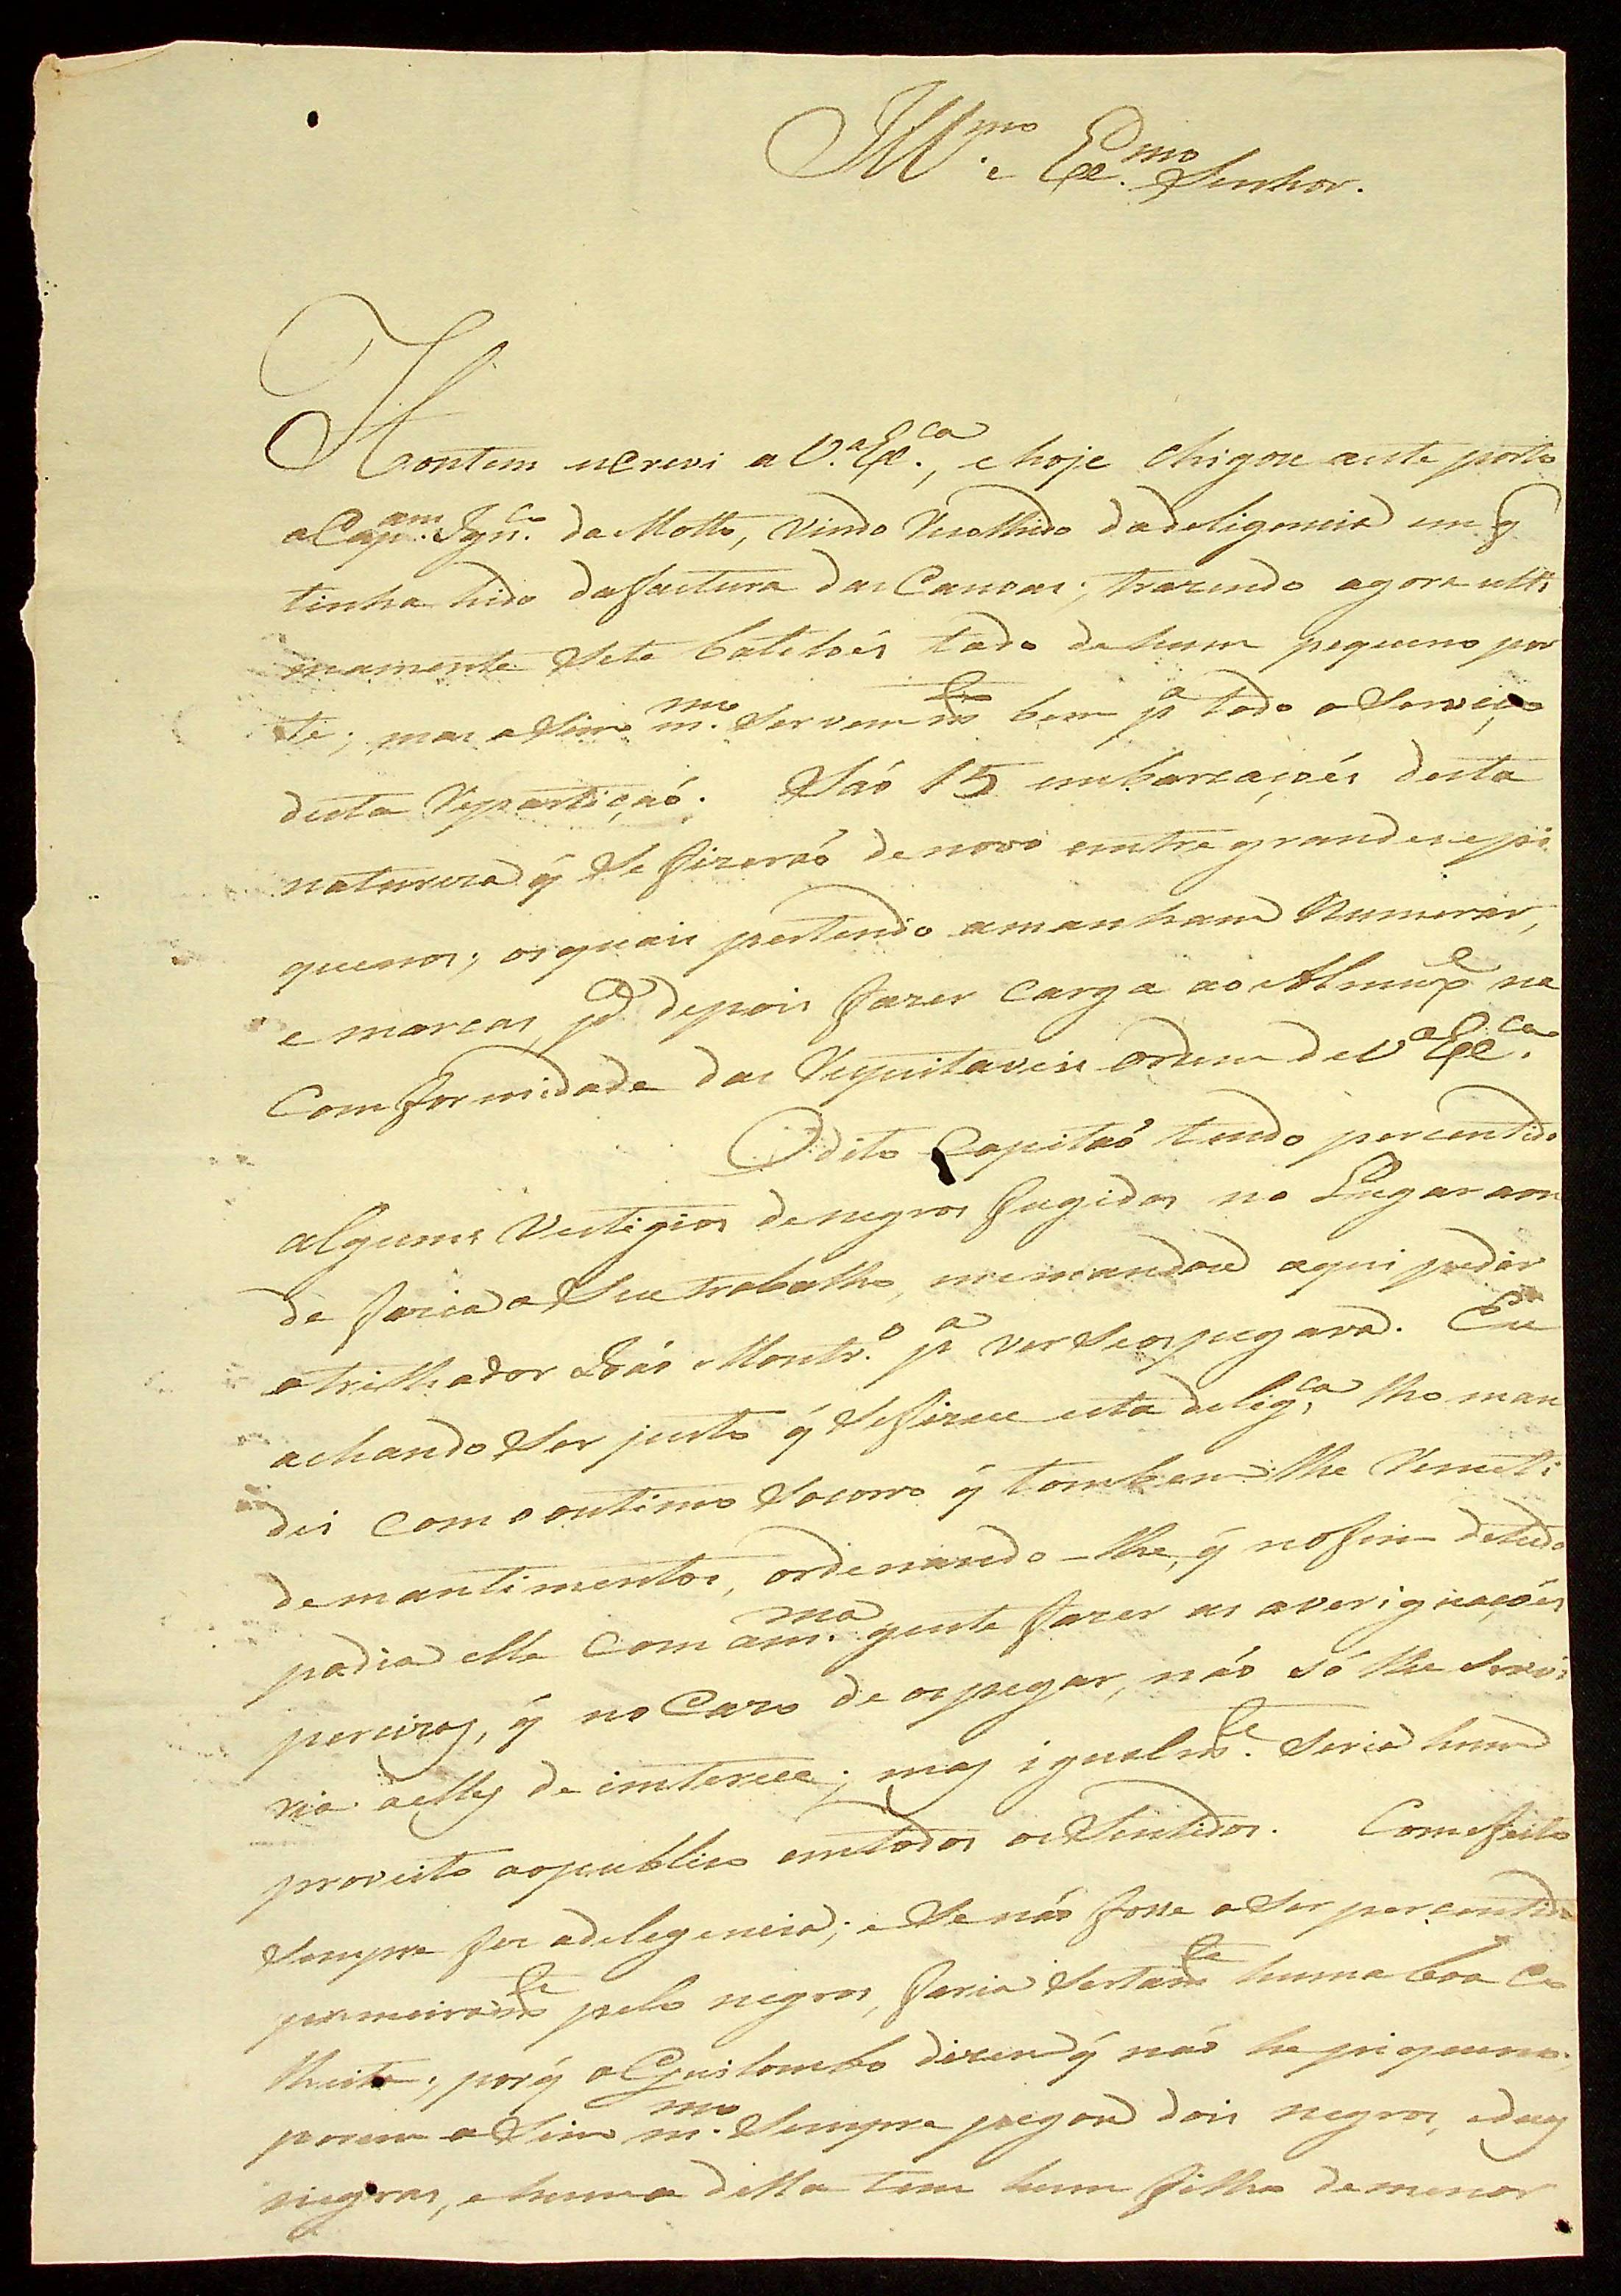 Ill.mo e Ex.mo Senhor.
Hontem escrevi a V.a Ex.ca, e hoje chigou aeste porto
o Capam. Ign.co da Motta, vindo Recolhido dadeligencia em q̃
tinha hido dafactura das Canoas; trazendo agora ulti
mamente Sete batelões todo de hum pequeno por
te; mas asim m.mo servem m.to bem p.a todo o Serviço
desta Repartiçaõ. Saõ 15 embarcações desta
natureza q̃ Se fizeraõ denovo emtre grandes epi
quenos; osquais pertendo amanham Numerar,
e marcar, p.a depois fazer carga ao Almux.e na
Comformidade das Respeitaveis ordens de V.a Ex.ca
O dito Capitaõ tendo percentido
alguns Vestigios denegros fugidos no Lugar aon
de fazia o Seu trabalho, memandou aqui pedir
o trilhador Joaõ Montr.o p.a ver Seospegava. Eu
achando Ser justo q̃ Sefizece esta delig.ca lho man
dei com o ontimo Socorro q̃ tambem lhe Remeti
demantimentos, ordenando-lhe, q̃ nofim detudo
podia elle com am.ma gente fazer as averiguações
percizas, q̃ no Cazo de ospegar, não só lhe Servi
ria aelles de imterece; mas igualm.te Seria hum
proveito aopublico emtodos os Sentidos. Comefeito
Sempre fez adelegencia; e Se não fosse o Ser percentido
permeiram.te pelos negros, faria Sertam.te huma boa Co
lheita; porq̃ o Guilombo dizem q̃ não he piqueno;
porem asim m.mo Sempre pegou dois negros, eduas
negras, ehuma dellas tem hum filho de menor